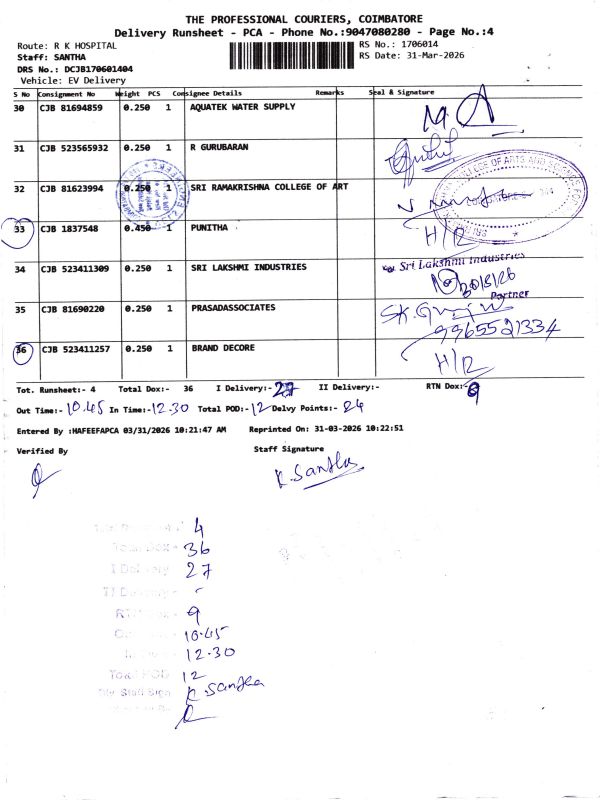 THE PROFESSIONAL COURIERS, COIMBATORE
Delivery Runsheet - PCA - Phone No.:9047080280 - Page No.:4
Route: R K HOSPITAL RS No.: 1706014
Staff: SANTHA RS Date: 31-Mar-2026
DRS No.: DCJB170601404
Vehicle: EV Delivery
S No Consignment No Weight PCS Consignee Details Remarks Seal & Signature
30 CJB 81694859 0.250 1 AQUATEK WATER SUPPLY
31 CJB 523565932 0.250 1 R GURUBARAN
32 CJB 81623994 0.250 1 SRI RAMAKRISHNA COLLEGE OF ART
33 CJB 1837548 0.450 1 PUNITHA H/R
34 CJB 523411309 0.250 1 SRI LAKSHMI INDUSTRIES Sri Lakshmi Industries
Partner
35 CJB 81690220 0.250 1 PRASADASSOCIATES
9965521334
36 CJB 523411257 0.250 1 BRAND DECORE H/R
Tot. Runsheet:- 4 Total Dox:- 36 I Delivery:- 27 II Delivery:- RTN Dox:- 9
Out Time:- 10.45 In Time:- 12.30 Total POD:- 12 Delvy Points:- 24
Entered By :HAFEEFAPCA 03/31/2026 10:21:47 AM Reprinted On: 31-03-2026 10:22:51
Verified By Staff Signature
K. Santha
4
36
I Delivery 27
9
10.45
12.30
Total POD 12
K. Santha